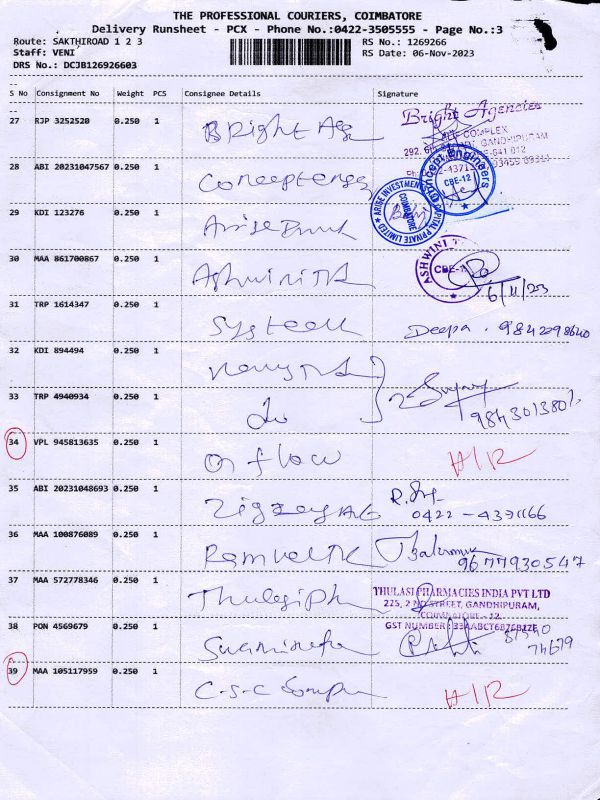 THE PROFESSIONAL COURIERS, COIMBATORE
Delivery Runsheet - PCX - Phone No.:0422-3505555 - Page No.:3
Route: SAKTHIROAD 1 2 3 RS No.: 1269266
Staff: VENI RS Date: 06-Nov-2023
DRS No.: DCJB126926603
S No Consignment No Weight PCS Consignee Details Signature
27 RJP 3252520 0.250 1 Bright Age Bright Agencies
COMPLEX
292, GANDHIPURAM
28 ABI 20231047567 0.250 1 Conceptengg Concept Engineers CBE-12
29 KDI 123276 0.250 1 Arise ARISE INVESTMENT CAPITAL PRIVATE LIMITED COIMBATORE
30 MAA 861700867 0.250 1 Ashwini ASHWINI CBE-1
6/11/23
31 TRP 1614347 0.250 1 System Deepa. 9842298640
32 KDI 894494 0.250 1
33 TRP 4940934 0.250 1 Do
34 VPL 945813635 0.250 1 On flow H/R
35 ABI 20231048693 0.250 1 Zigzag
0422-4391166
36 MAA 100876089 0.250 1 9677930547
37 MAA 572778346 0.250 1 Thulasi Ph THULASI PHARMACIES INDIA PVT LTD
225, 2 ND STREET, GANDHIPURAM,
COIMBATORE - 12
38 PON 4569679 0.250 1 GST NUMBER
39 MAA 105117959 0.250 1 C-S-C H/R